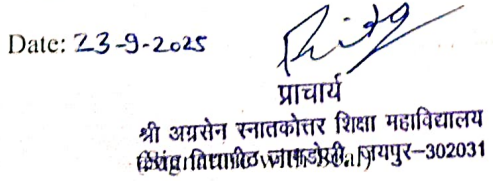 Date: 23-9-2025
प्राचार्य
श्री अग्रसेन स्नातकोत्तर शिक्षा महाविद्यालय
विद्यापीठ जामडोली, जयपुर-302031